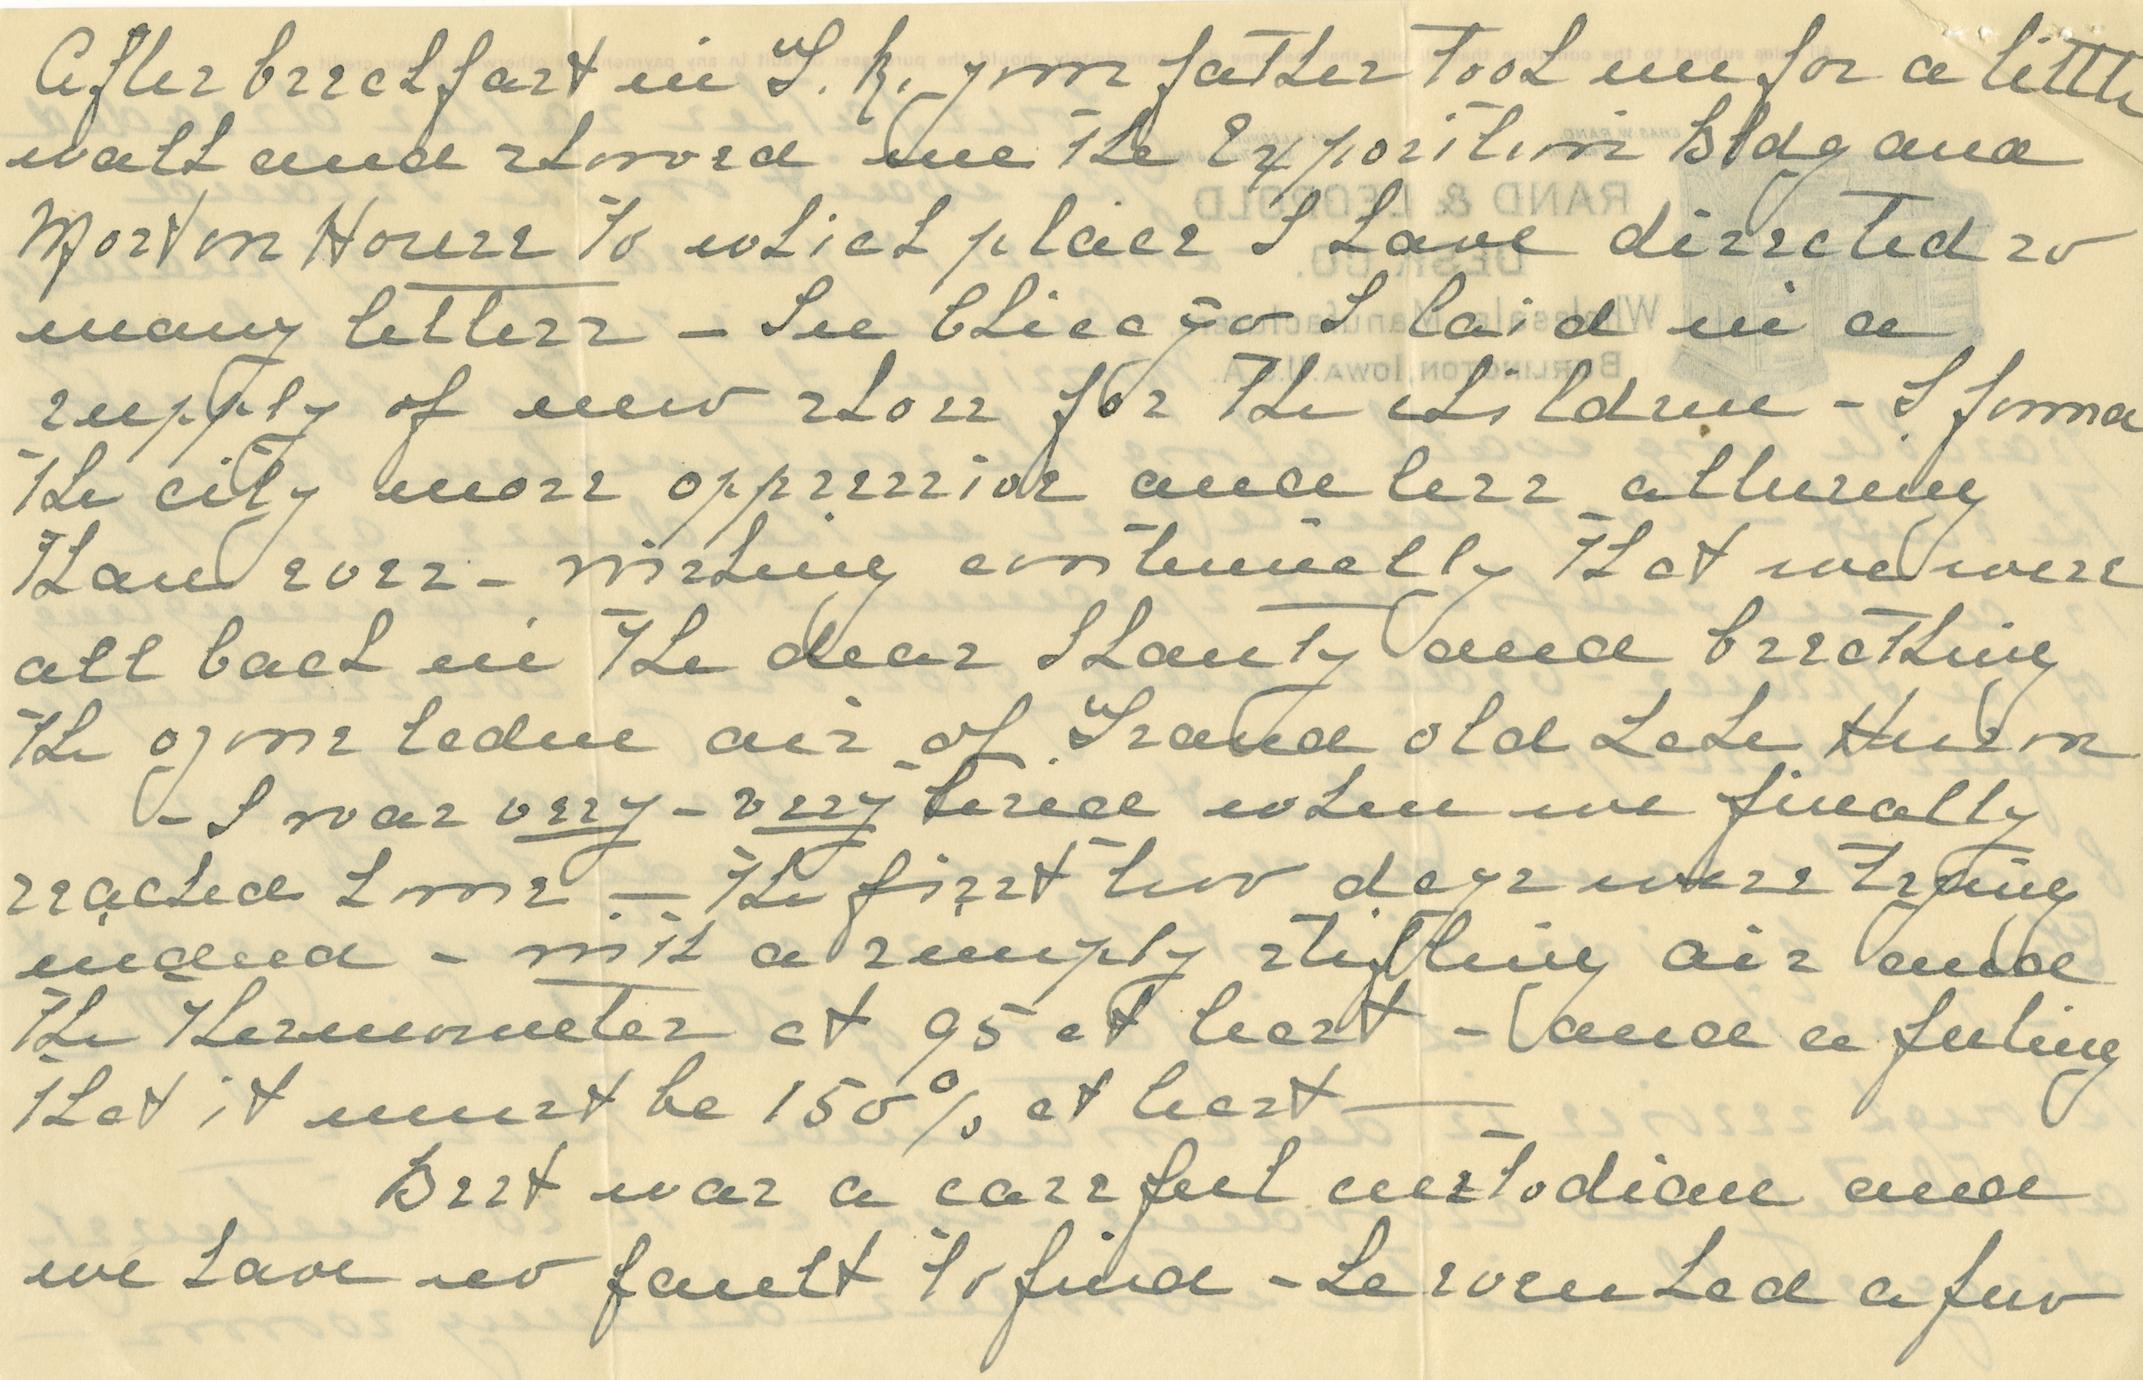 After breakfast in G. R. your father took me for a little
walk and showed me the Exposition Bldg and
Morton House to which place I have directed so
many letters - In Chicago I laid in a
supply of new shoes for the children - I found
the city more oppressive and less alluring
than ever - wishing continually that we were
all back in the dear Shanty and breathing
the ozone laden air of Grand old Lake Huron
- I was very - very tired when we finally
reached home - The first two days were trying
indeed - with a simply stifling air and
the thermometer at 95 at least - and a feeling
that it must be 150% at least -
Bert was a careful custodian and
we have no fault to find - he even had a few
RAND & LEOPOLD
DESK CO.
Wholesale Manufacturers
BURLINGTON, IOWA. U.S.A.